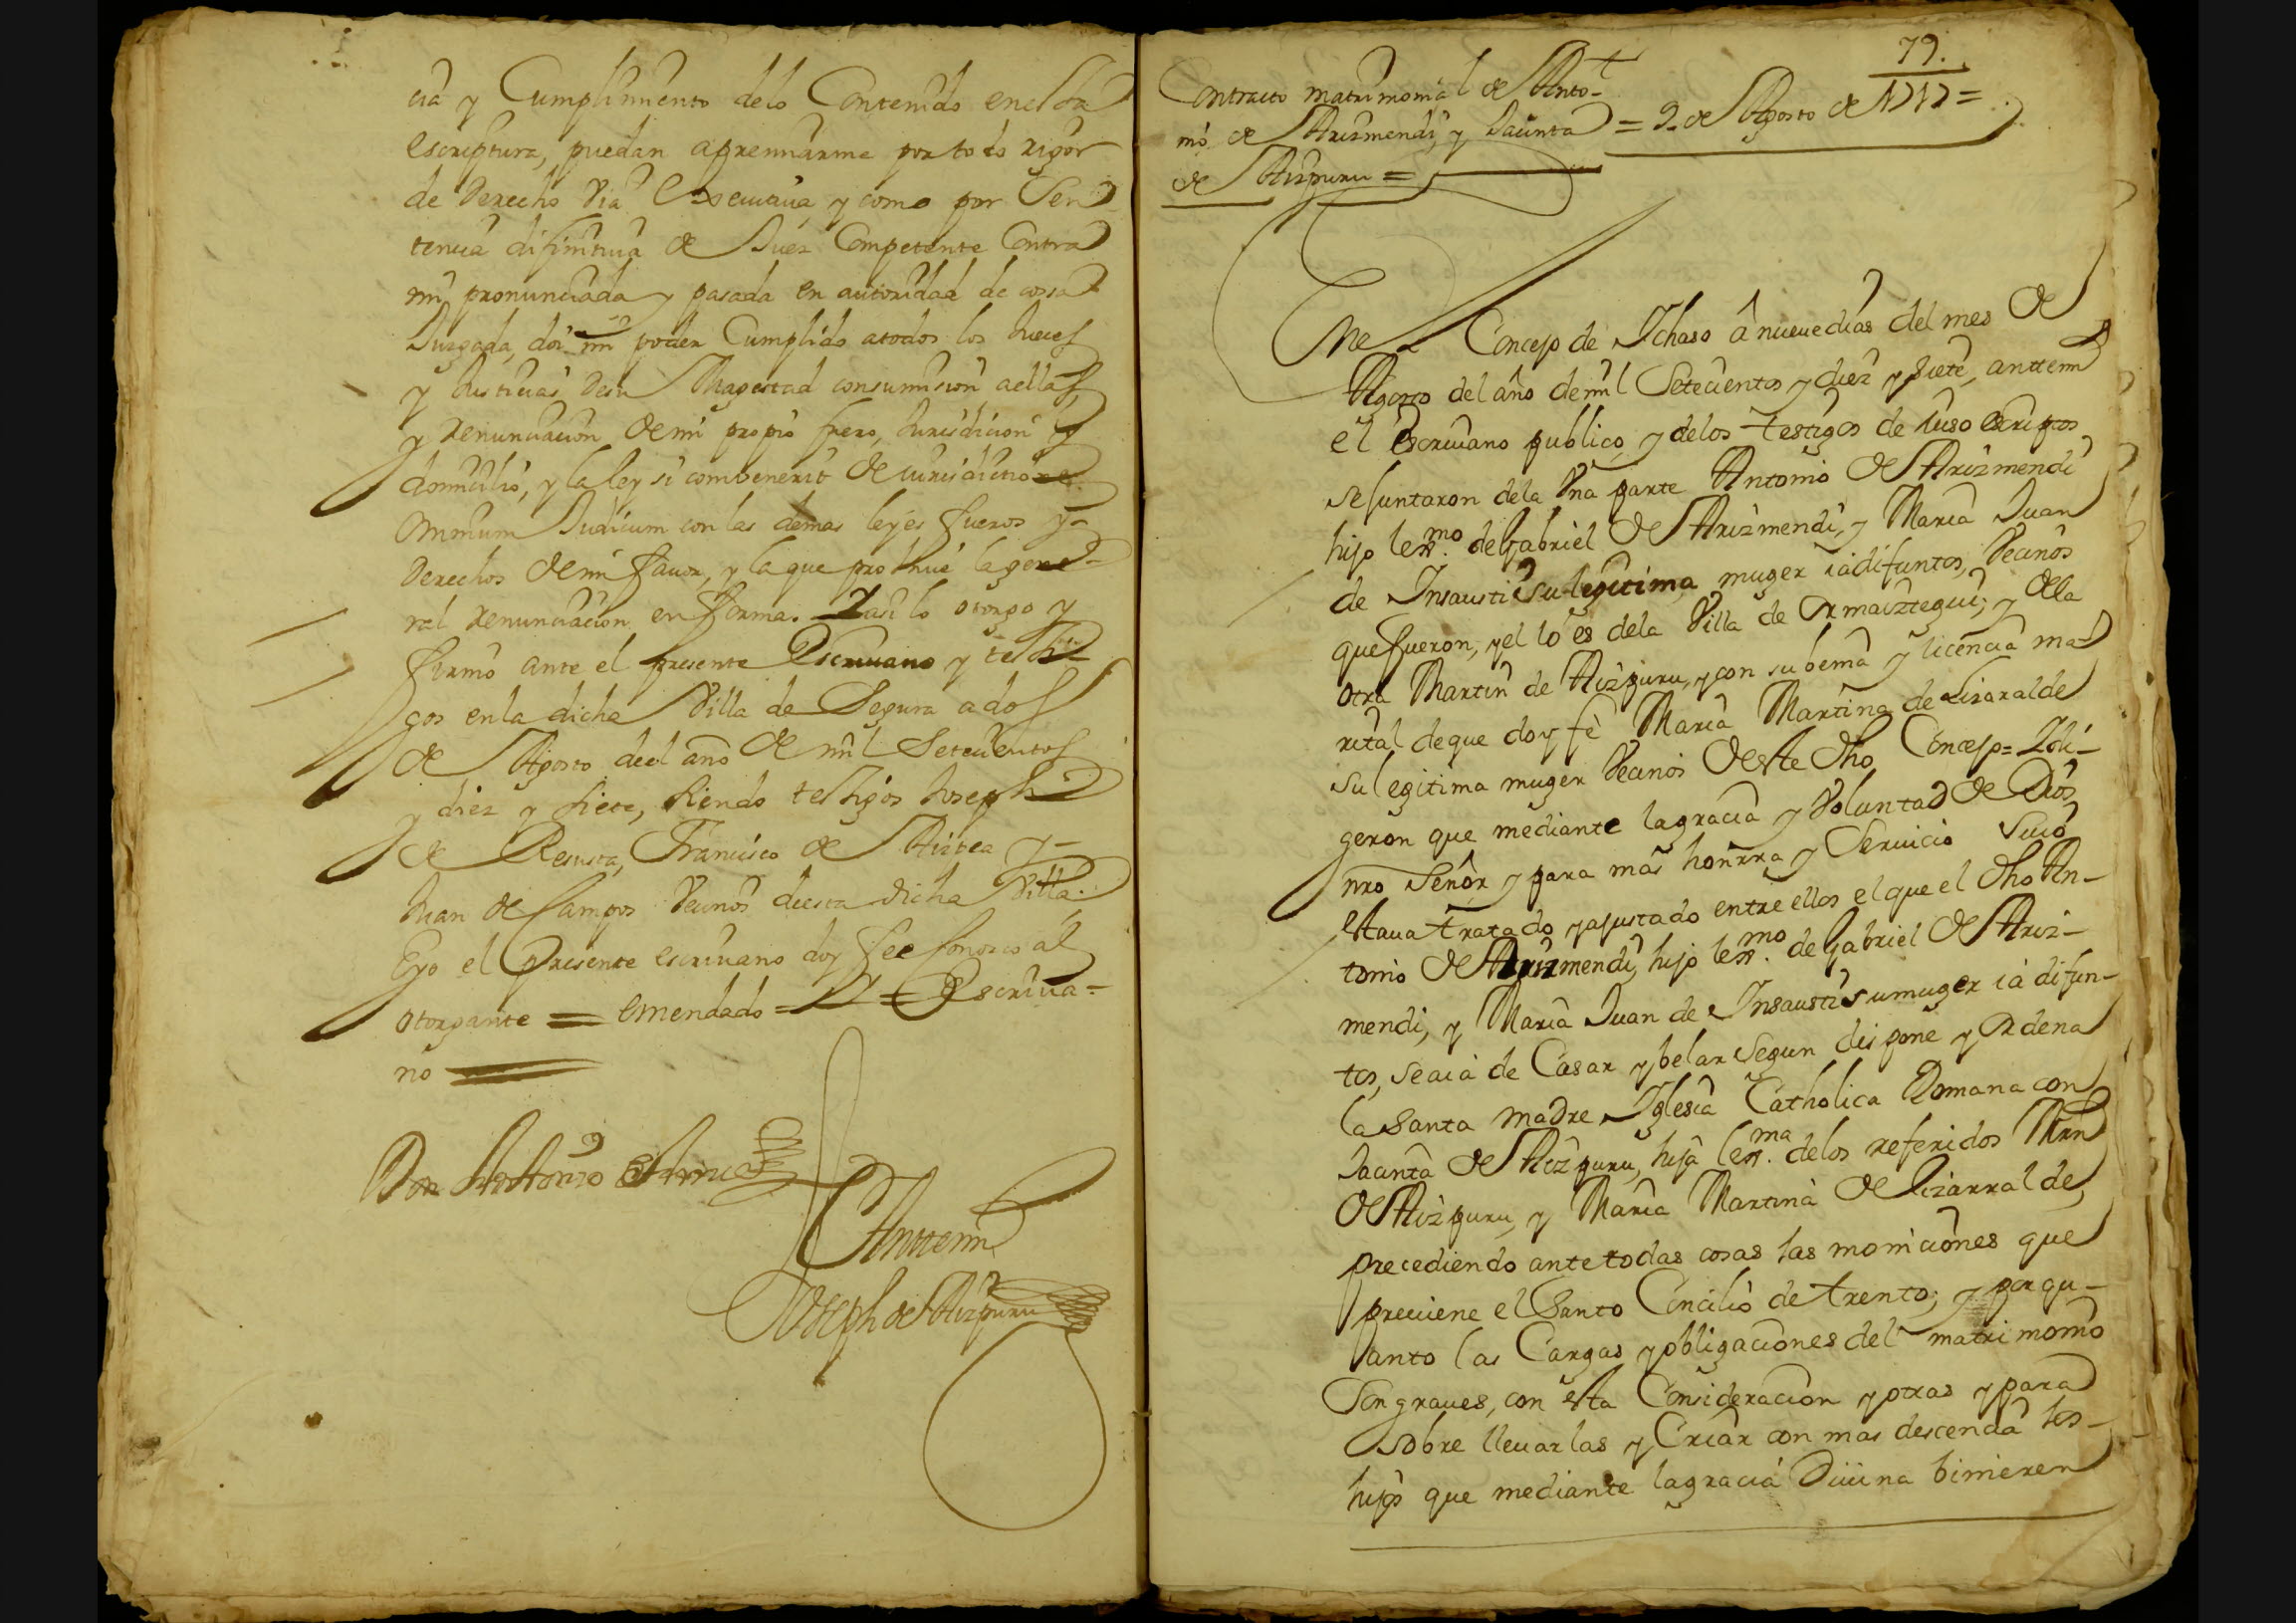 cia y Cumplimiento delo Contenido enesta
escriptura, puedan apremiarme por todo rigor
de derecho Via Executiva, y como por Sen
tencia difinitiva de Juez Competente Contra
mi pronunciada y pasada en autoridad de cossa
Juzgada, doi mi poder Cumplido atodos los Jueces
y Justicias desu Magestad consumision aellas,
y Renunciacion de mi propio fuero, Jurisdicion y
domicilio, y la ley si combenerit de iurisdictione
omnium Judicum con las demas leyes fueros y-
derechos demi favor, y la que prohive la gene-
ral Renunciacion en forma. Yasi lo otorgo y
firmo ante el presente Escrivano y testi-
gos enla dicha Villa de Segura a dos
de Agosto deel año de mil Setecientos
y diez y siete, siendo testigos Joseph
de Resusta, Francisco de Aizbea y-
Juan de Campos Vecinos deesta dicha Villa.
Eyo el presente escrivano doy fee Conosco al
otorgante = emendado = Y = Escriva-
no
Don Antonio
Anttemi
Joseph de Aizpuru
79.
Contracto matrimonial de Anto-
nio de Arizmendi, y Jacinta = 9 de Agosto de 1717 =
de Aizpuru =
En el Concejo de Ichaso â nueve dias del mes de
Agosto del año demil Setecientos y diez y siete, anttemi
el escrivano publico, y delos testigos de iuso escriptos
se Juntaron dela Una parte Antonio de Arizmendi
hijo lexmo. de Gabriel de Arizmendi, y Maria Juan
de Insausti su legitima muger ia difuntos, Vecinos
que fueron, y el lo es dela Villa de Ormaiztegui; y dela
otra Martin de Aizpuru, y con su benia y licencia ma-
rital de que doy fè Maria Martina de Lizaralde
su legitima muger Vecinos deste dho Concejo = Y di-
geron que mediante la gracia y Voluntad de Dios
nro Señor y para mas honrra y Servicio Suio
estava tratado y ajustado entre ellos el que el dho An-
tonio de Arizmendi, hijo lexmo. de Gabriel de Ariz-
mendi, y Maria Juan de Insausti su muger ia difun-
tos, se aia de Casar y belar Segun dispone y Ordena
la Santa madre Iglesia Catholica Romana con
Jacinta de Aizpuru, hija lexma. delos referidos Mrn
de Aizpuru, y Maria Martina de Lizarralde,
precediendo ante todas cosas las moniciones que
previene el Santo Concilio de trento; y por qu-
anto las Cargas y obligaciones del matrimonio
Son graves, con esta Consideracion y otras y para
sobre llevarlas y Criar con mas descencia los-
hijos que mediante la gracia Divina binieren